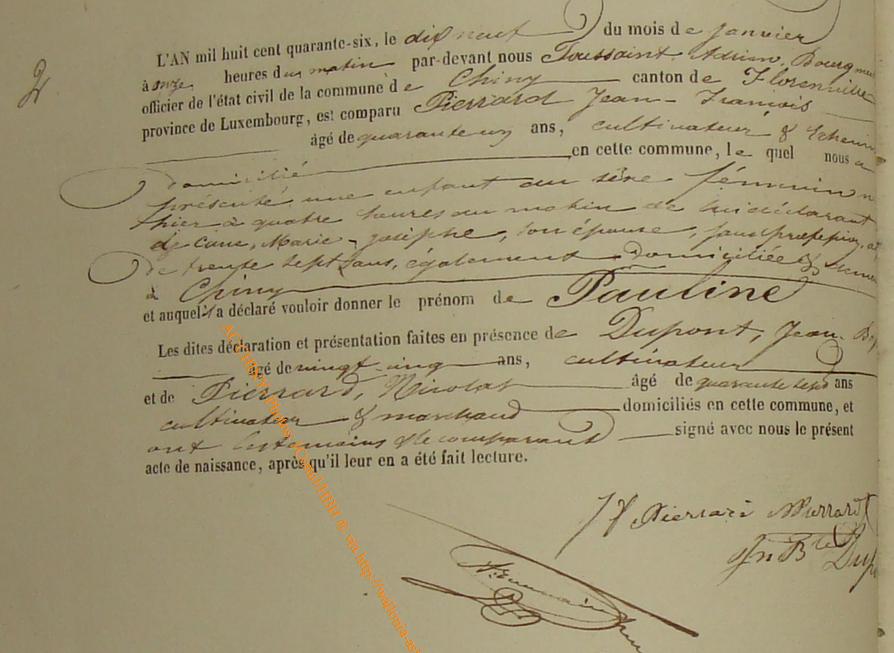 2
L'AN mil huit cent quarante-six, le dix neuf du mois de janvier
à onze heures du matin par-devant nous Toussaint, Adrien, Bourgmes
officier de l'état civil de la commune de Chiny canton de Florenville
province de Luxembourg, est comparu Pierrard Jean-François
âgé de quarante un ans, cultivateur & Echevin
domicilié en cette commune, le quel nous a
présenté une enfant du sèxe féminin n
hier à quatre heures du matin de lui déclarant
de Marie-josèphe, son épouse, sans profession,
de trente sept ans, également domiciliée &
à Chiny
et auquel il a déclaré vouloir donner le prénom de Pauline
Les dites déclaration et présentation faites en présence de Dupont, Jean-B
âgé de vingt-cinq ans, cultivateur
et de Pierrard, Nicolas âgé de quarante sept ans
cultivateur & marchand domiciliés en cette commune, et
ont les témoins & le comparant signé avec nous le présent
acte de naissance, après qu'il leur en a été fait lecture.
Pierrard
Jn Bte Dup